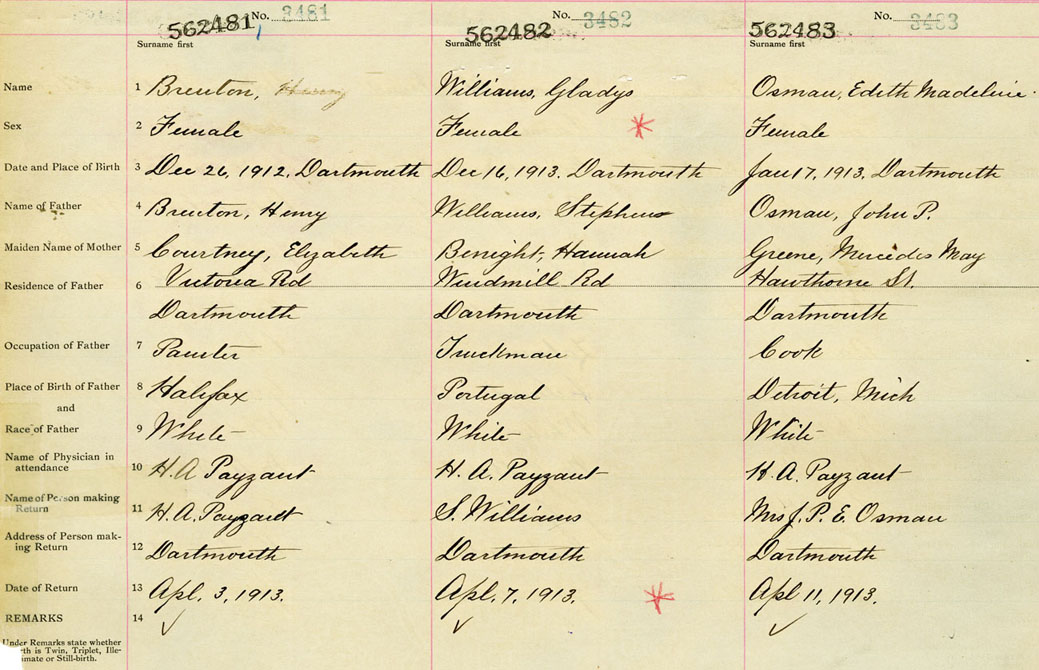 No. 3481 No. 3482 No. 3483
562481 562482 562483
Surname first Surname first Surname first
Name 1 Brenton, Henry Williams, Gladys Osman, Edith Madeline.
Sex 2 Female Female Female
Date and Place of Birth 3 Dec 26, 1912, Dartmouth Dec 16, 1913. Dartmouth Jan 17, 1913, Dartmouth
Name of Father 4 Brenton, Henry Williams, Stephens Osman, John P.
Maiden Name of Mother 5 Courtney, Elizabeth Benight, Hannah Greene, Mercedes May
Residence of Father 6 Victoria Rd Windmill Rd Hawthorne St.
Dartmouth Dartmouth Dartmouth
Occupation of Father 7 Painter Truckman Cook
Place of Birth of Father 8 Halifax Portugal Detroit, Mich
and
Race of Father 9 White White White
Name of Physician in
attendance 10 H.A Payzant H. A. Payzant H. A. Payzant
Name of Person making
Return 11 H.A. Payzant S. Williams Mrs J. P. E. Osman
Address of Person mak-
ing Return 12 Dartmouth Dartmouth Dartmouth
Date of Return 13 Apl. 3, 1913. Apl. 7, 1913. Apl 11, 1913.
REMARKS 14
Under Remarks state whether
rth is Twin, Triplet, Ille-
imate or Still-birth.